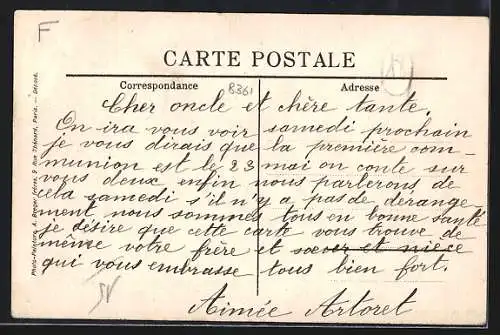 F
CARTE POSTALE
Correspondance
8361
Adresse
Cher oncle et chère tante,
On ira vous voir samedi prochain
je vous dirais que la première com-
munion est le 23 mai on conte sur
vous deux enfin nous parlerons de
cela samedi s'il n'y a pas de dérange-
ment nous sommes tous en bonne santé
je désire que cette carte vous trouve de
même votre frère et sœur et nièce
qui vous embrasse tous bien fort.
Aimée Artoret
Photo-Peinture, A. Breger frères, 9 Rue Thénard, Paris.